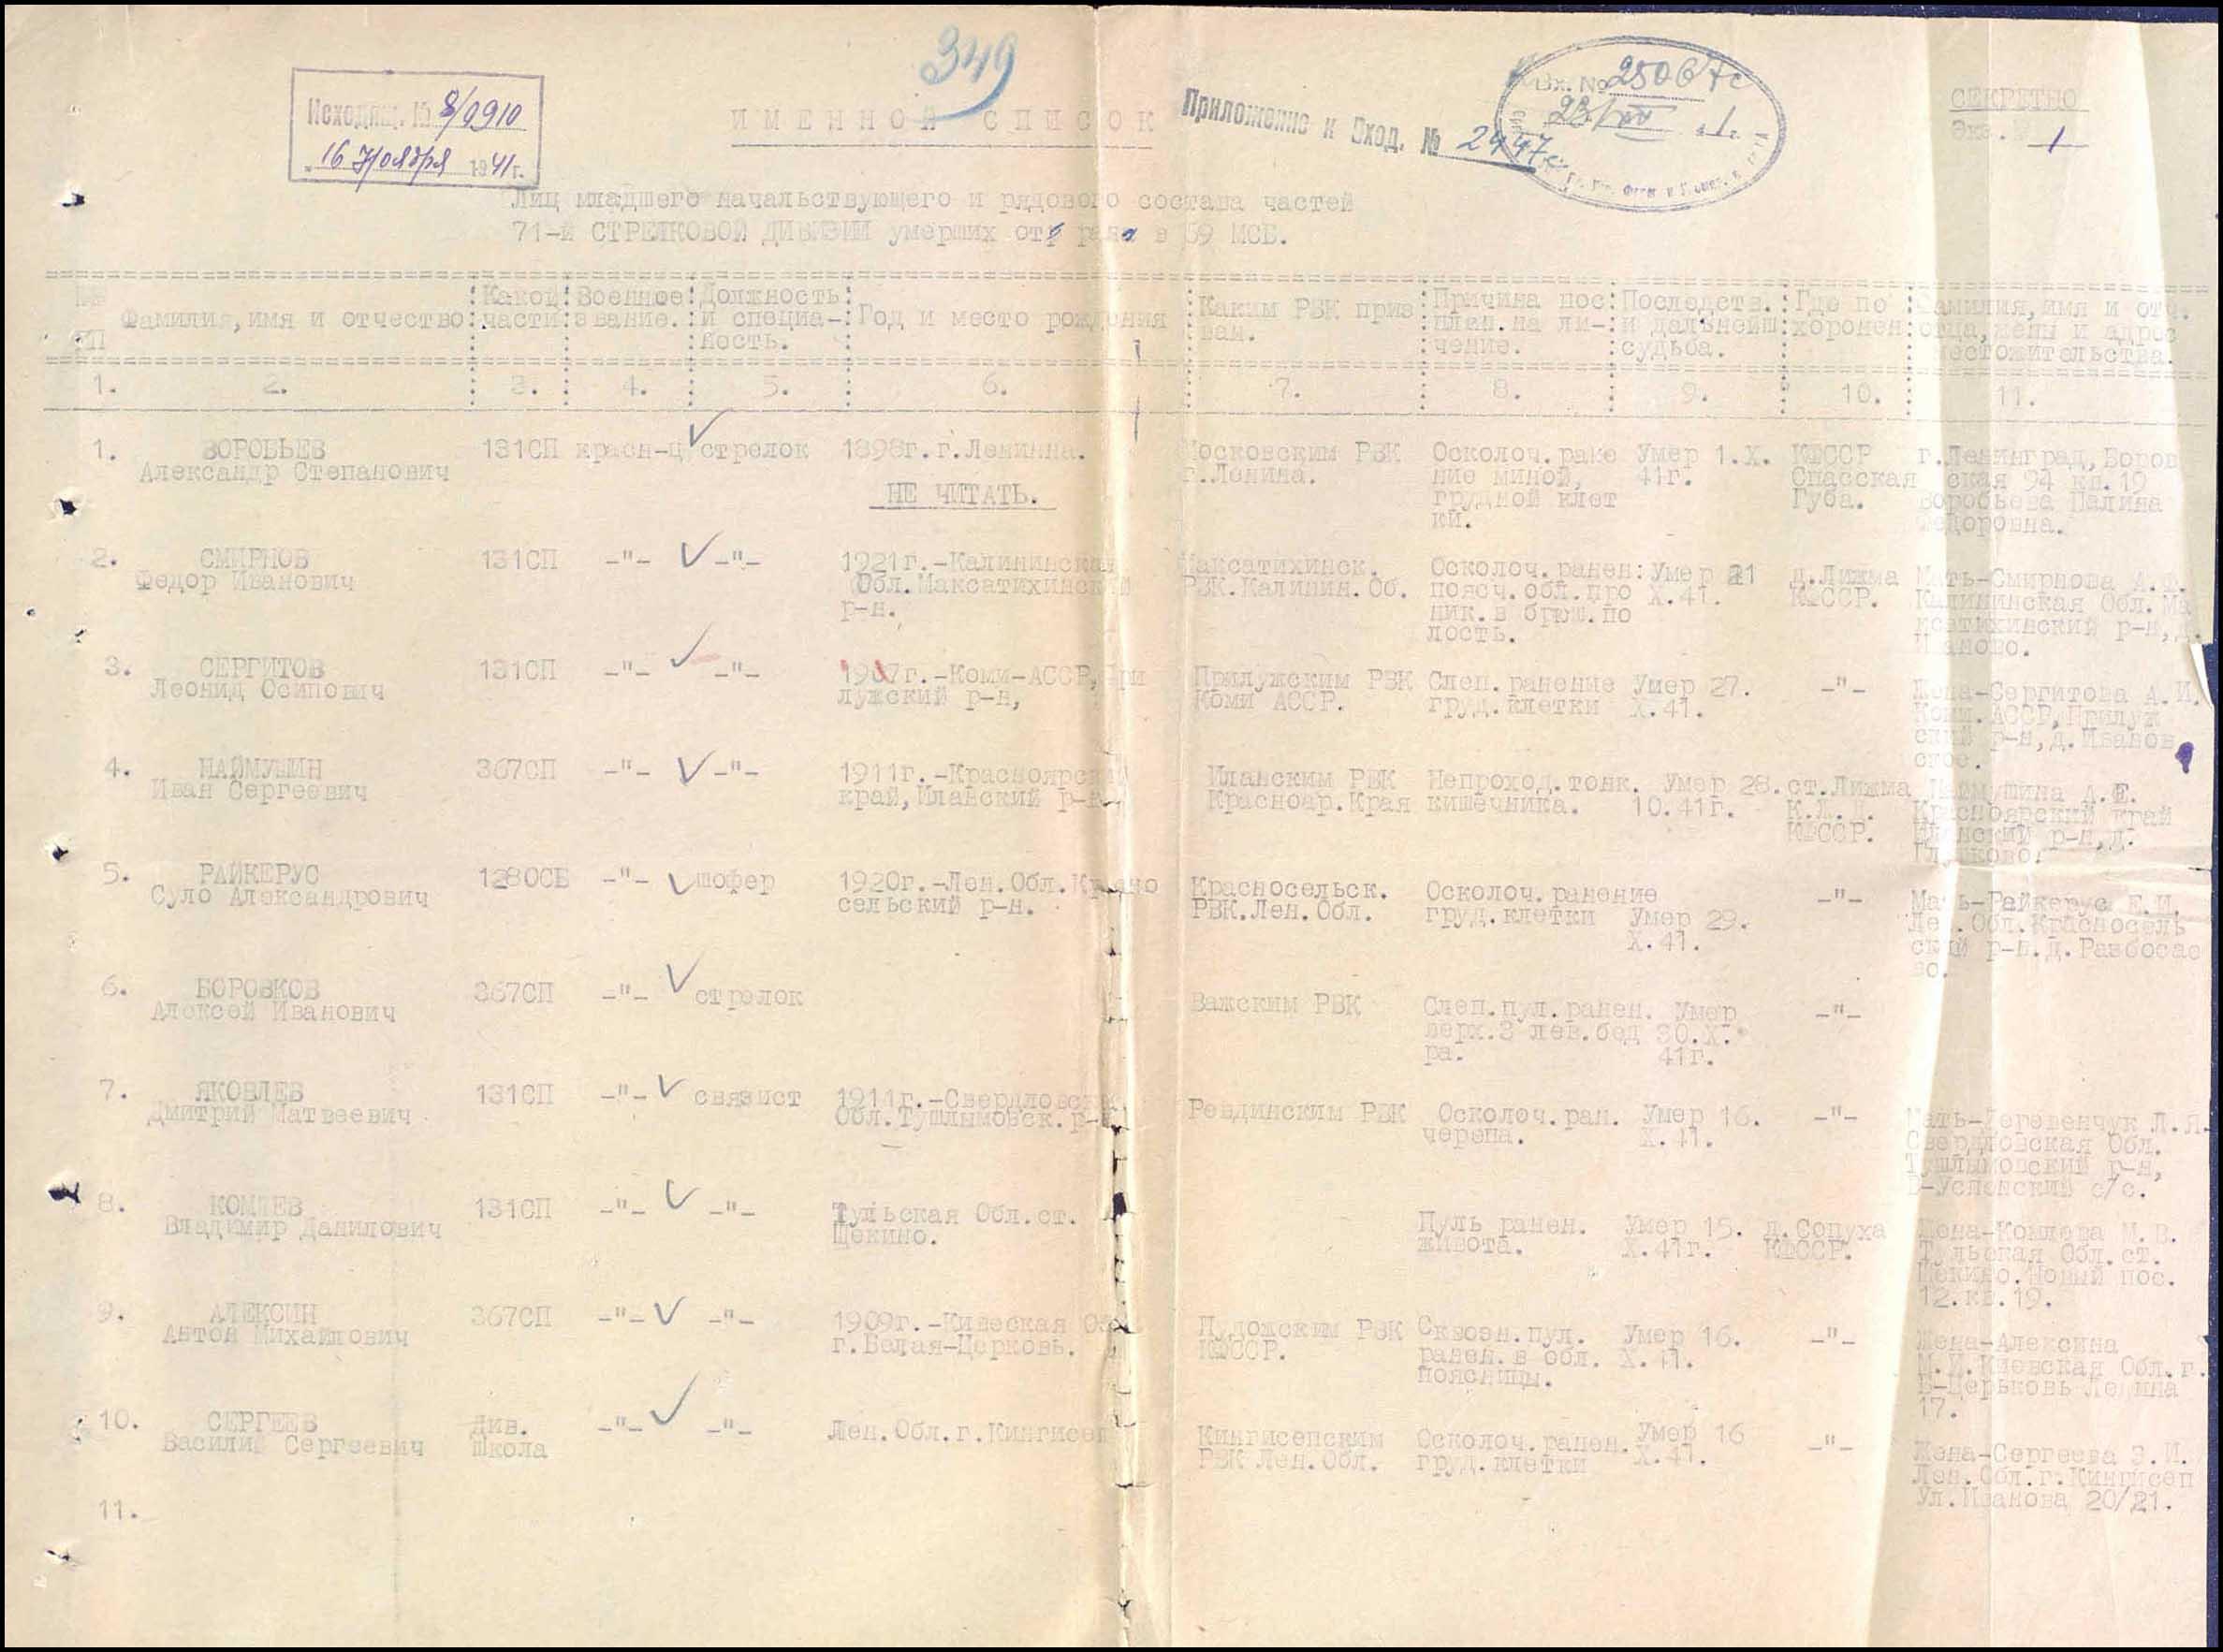 349
Исходящ. № 8/0910
16 Ноября 1941 г.
ИМЕННОЙ СПИСОК
Приложение к Вход. № 2447с
Вх. №
СЕКРЕТНО
Экз. 1
Лиц младшего начальствующего и рядового состава частей
71-й СТРЕЛКОВОЙ ДИВИЗИИ умерших от ран в 69 МСБ.
№№ пп
Фамилия, имя и отчество
Какой части
Военное звание.
Должность и специа-ность.
Год и место рождения
Каким РВК призван.
Причина пос: план. на ли-чение.
Последств. и дальнейш: судьба.
Где по хоронен:
Фамилия, имя и отч. отца, жены и адрес местожительства.
1. 2. 3. 4. 5. 6. 7. 8. 9. 10. 11.
1. ВОРОБЬЕВ 131СП красн-ц стрелок 1898г. г. Ленинна. Московским РВК Осколоч. ране Умер 1.X. КФССР г. Ленинград, Боров
Александр Степанович г. Ленина. ние миной, 41г. Спасская ская 94 кв. 19
НЕ ЧИТАТЬ. грудной клет Губа. Воробьева Палина
ки. Федоровна.
2. СМИРНОВ 131СП -"- -"- 1921г.-Калининская Максатихинск. Осколоч. ранен: Умер 21 д. Лижма Мать-Смирнова А.Ф.
Федор Иванович Обл. Максатихинский РВК. Калинин. Об. поясч. обл. про X.41. КФССР. Калининская Обл. Ма
р-н. ник. в брюш. по ксатихинский р-н, д.
лость. Иваново.
3. СЕРГИТОВ 131СП -"- -"- 1907г.-Коми-АССР, При Прилужским РВК Слеп. ранение Умер 27. -"- Жена-Сергитова А.И.
Леонид Осипович лужский р-н, Коми АССР. груд. клетки X.41. Коми. АССР, Прилуж
ский р-н, д. Иванов
ское.
4. НАЙМУШИН 367СП -"- -"- 1911г.-Красноярский Иланским РВК Непроход. тонк. Умер 28. ст. Лижма Наймушина А.Е.
Иван Сергеевич край, Иланский р-н Красноар. Края кишечника. 10.41г. К.Ж.Д. Красноярский край
КФССР. Иланский р-н, д.
5. РАЙКЕРУС 128ОСБ -"- шофер 1920г.-Лен. Обл. Красно Красносельск. Осколоч. ранение -"- Мать-Райкерус Е.И.
Суло Александрович сельский р-н. РВК. Лен. Обл. груд. клетки Умер 29. Лен. Обл. Красносель
X.41. ский р-н. д. Разбосае
во.
6. БОРОВКОВ 367СП -"- стрелок Важским РВК Слеп. пул. ранен. Умер -"-
Алексей Иванович верх. 3 лев. бед 30.X.
ра. 41г.
7. ЯКОВЛЕВ 131СП -"- связист 1911г.-Свердловская Ревдинским РВК Осколоч. ран. Умер 16. -"- Мать-Легевенчук Л.Я.
Дмитрий Матвеевич Обл. Тушлымовск. р-н черепа. X.41. Свердловская Обл.
Тушлымовский р-н,
В-Успенский с/с.
8. КОМЛЕВ 131СП -"- -"- Тульская Обл. ст. Пуль ранен. Умер 15. д. Сопуха Жена-Комлева М.В.
Владимир Данилович Щекино. живота. X.41г. КФССР. Тульская Обл. ст.
Щекино. Новый пос.
12. кв. 19.
9. АЛЕКСИН 367СП -"- -"- 1909г.-Киевская Об Пудожским РВК Сквозн. пул. Умер 16. -"- Жена-Алексина
Антон Михайлович г. Белая-Церковь. КФССР. ранен. в обл. X.41. М.И. Киевская Обл. г.
поясницы. Б-Церьковь Ленина
17.
10. СЕРГЕЕВ Див. -"- -"- Лен. Обл. г. Кингисеп Кингисепским Осколоч. ранен. Умер 16 -"- Жена-Сергеева З.И.
Василий Сергеевич Школа РВК Лен. Обл. груд. клетки X.41. Лен. Обл. г. Кингисеп
Ул. Иванова 20/21.
11.